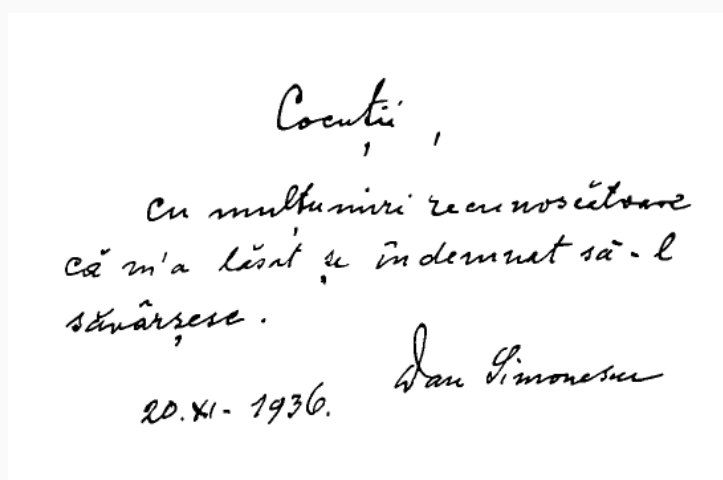 Cocuții,
cu mulțumiri recunoscătoare
că m'a lăsat și îndemnat să-l
săvârșesc.
Dan Simonescu
20.XI-1936.